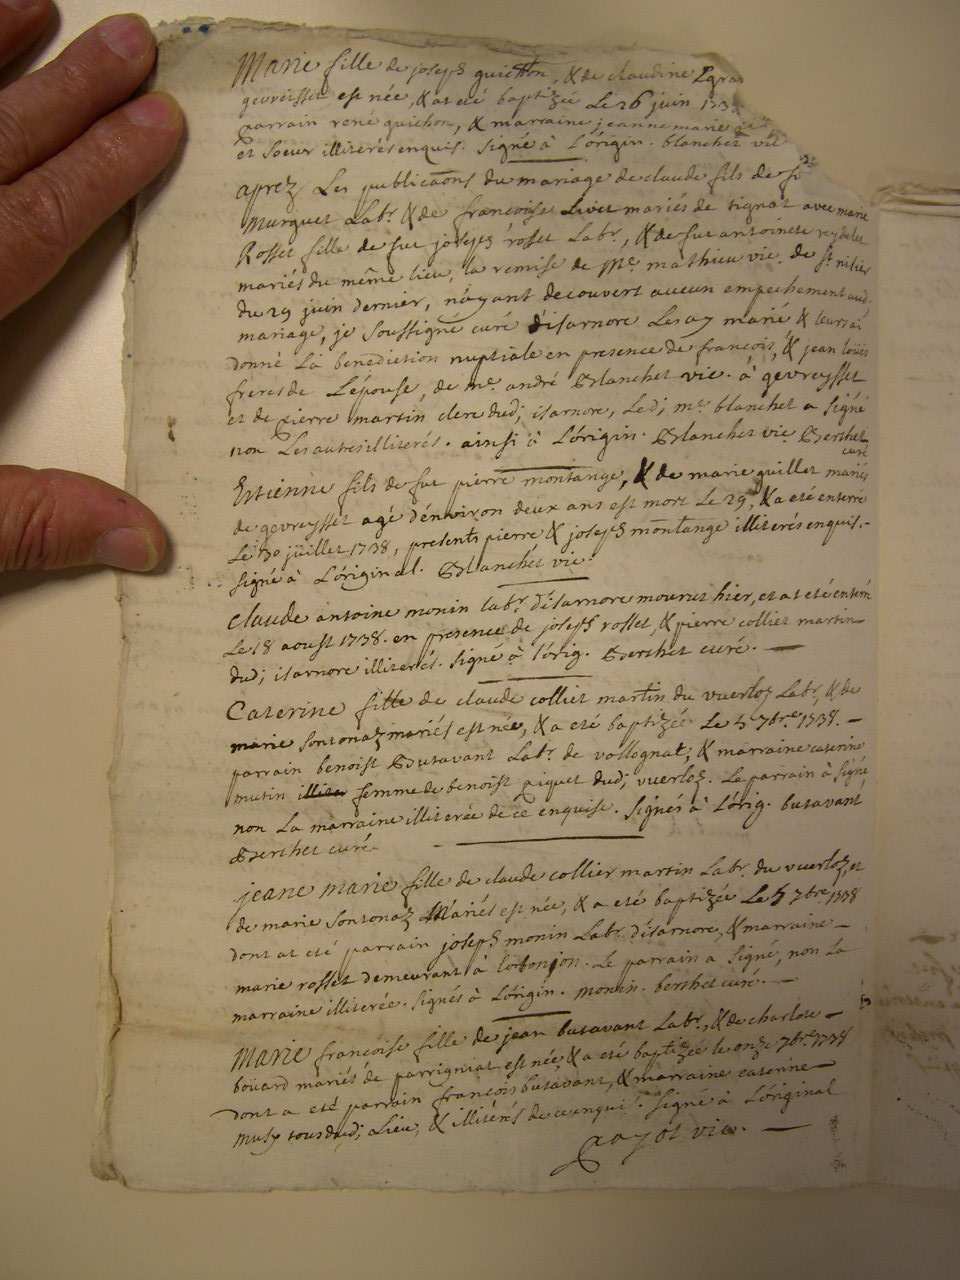 Marie fille de joseph guichon, & de claudine
gevreisset est née, & at eté baptizée Le 26 juin 173
parrain rené guichon, & marraine jeanne marie
et soeur illiterés enquis. signé à L'origin. blanchet vic
aprez Les publicaōns du mariage de claude fils de
Murguet Labr. & de françoise Livet mariés de tignat avec marie
Rosset fille de fut joseph rosset Labr., & de fut antoinete
mariés du même lieu, la remise de Mre. mathieu vic. de st.
du 29 juin dernier, n'ayant decouvert aucun empechement aud.
mariage, je soussigné curé d'isarnore Les ay marié & leurs ai
donné La benediction nuptiale en presence de francois, & jean loüis
freres de L'épouse, de me. andré Blanchet vic. à gevreysset
et de pierre martin clerc dud; isarnore, Led; mre. blanchet a signé
non Les autres illiterés. ainsi à L'origin. Blanchet vic Berthet
curé
Estienne fils de fut pierre montange, & de marie guillet mariés
de gevreysset agé d'environ deux ans est mort Le 29, & a eté enterré
Le 30 jüillet 1738, presents pierre & joseph montange illiterés enquis.-
signé à L'original. Blanchet vic.
claude antoine monin labr. d'isarnore mourut hier, et at eté enterré
Le 18 aoust 1738. en presence de joseph rosset, & pierre collier martin
dud; isarnore illiterés. signé à L'orig. Berthet curé.
Caterine fille de claude collier martin du vuerloz Labr, & de
marie sontonaz mariés est née, & a eté baptizée Le 5 7bre 1738. -
parrain benoist Butavant Labr. de volognat; & marraine caterine
mutin femme de benoist piquet dud; vuerloz. Le parrain à signé
non La marraine illiterée de ce enquise. signés à L'orig. butavant
Berthet curé
jeane marie fille de claude collier martin Labr. du vuerloz, et
de marie sontonaz Mariés est née, & a eté baptizée Le 5 7bre 1738
dont at eté parrain joseph monin Labr. d'isarnore, & marraine -
marie rosset demeurant à. Le parrain a signé, non La
marraine illiterée. signés à L'origin. monin. berthet curé. -
Marie francoise fille de jean butavant Labr., & de charlote -
bouard mariés de parrigniat est née & a eté baptizée le onze 7bre 1738
dont a eté parrain francois butavant, & marraine caterine
Musy tous dud; Lieu, & illiterés de ce enquis. signé à L'original
vic. -